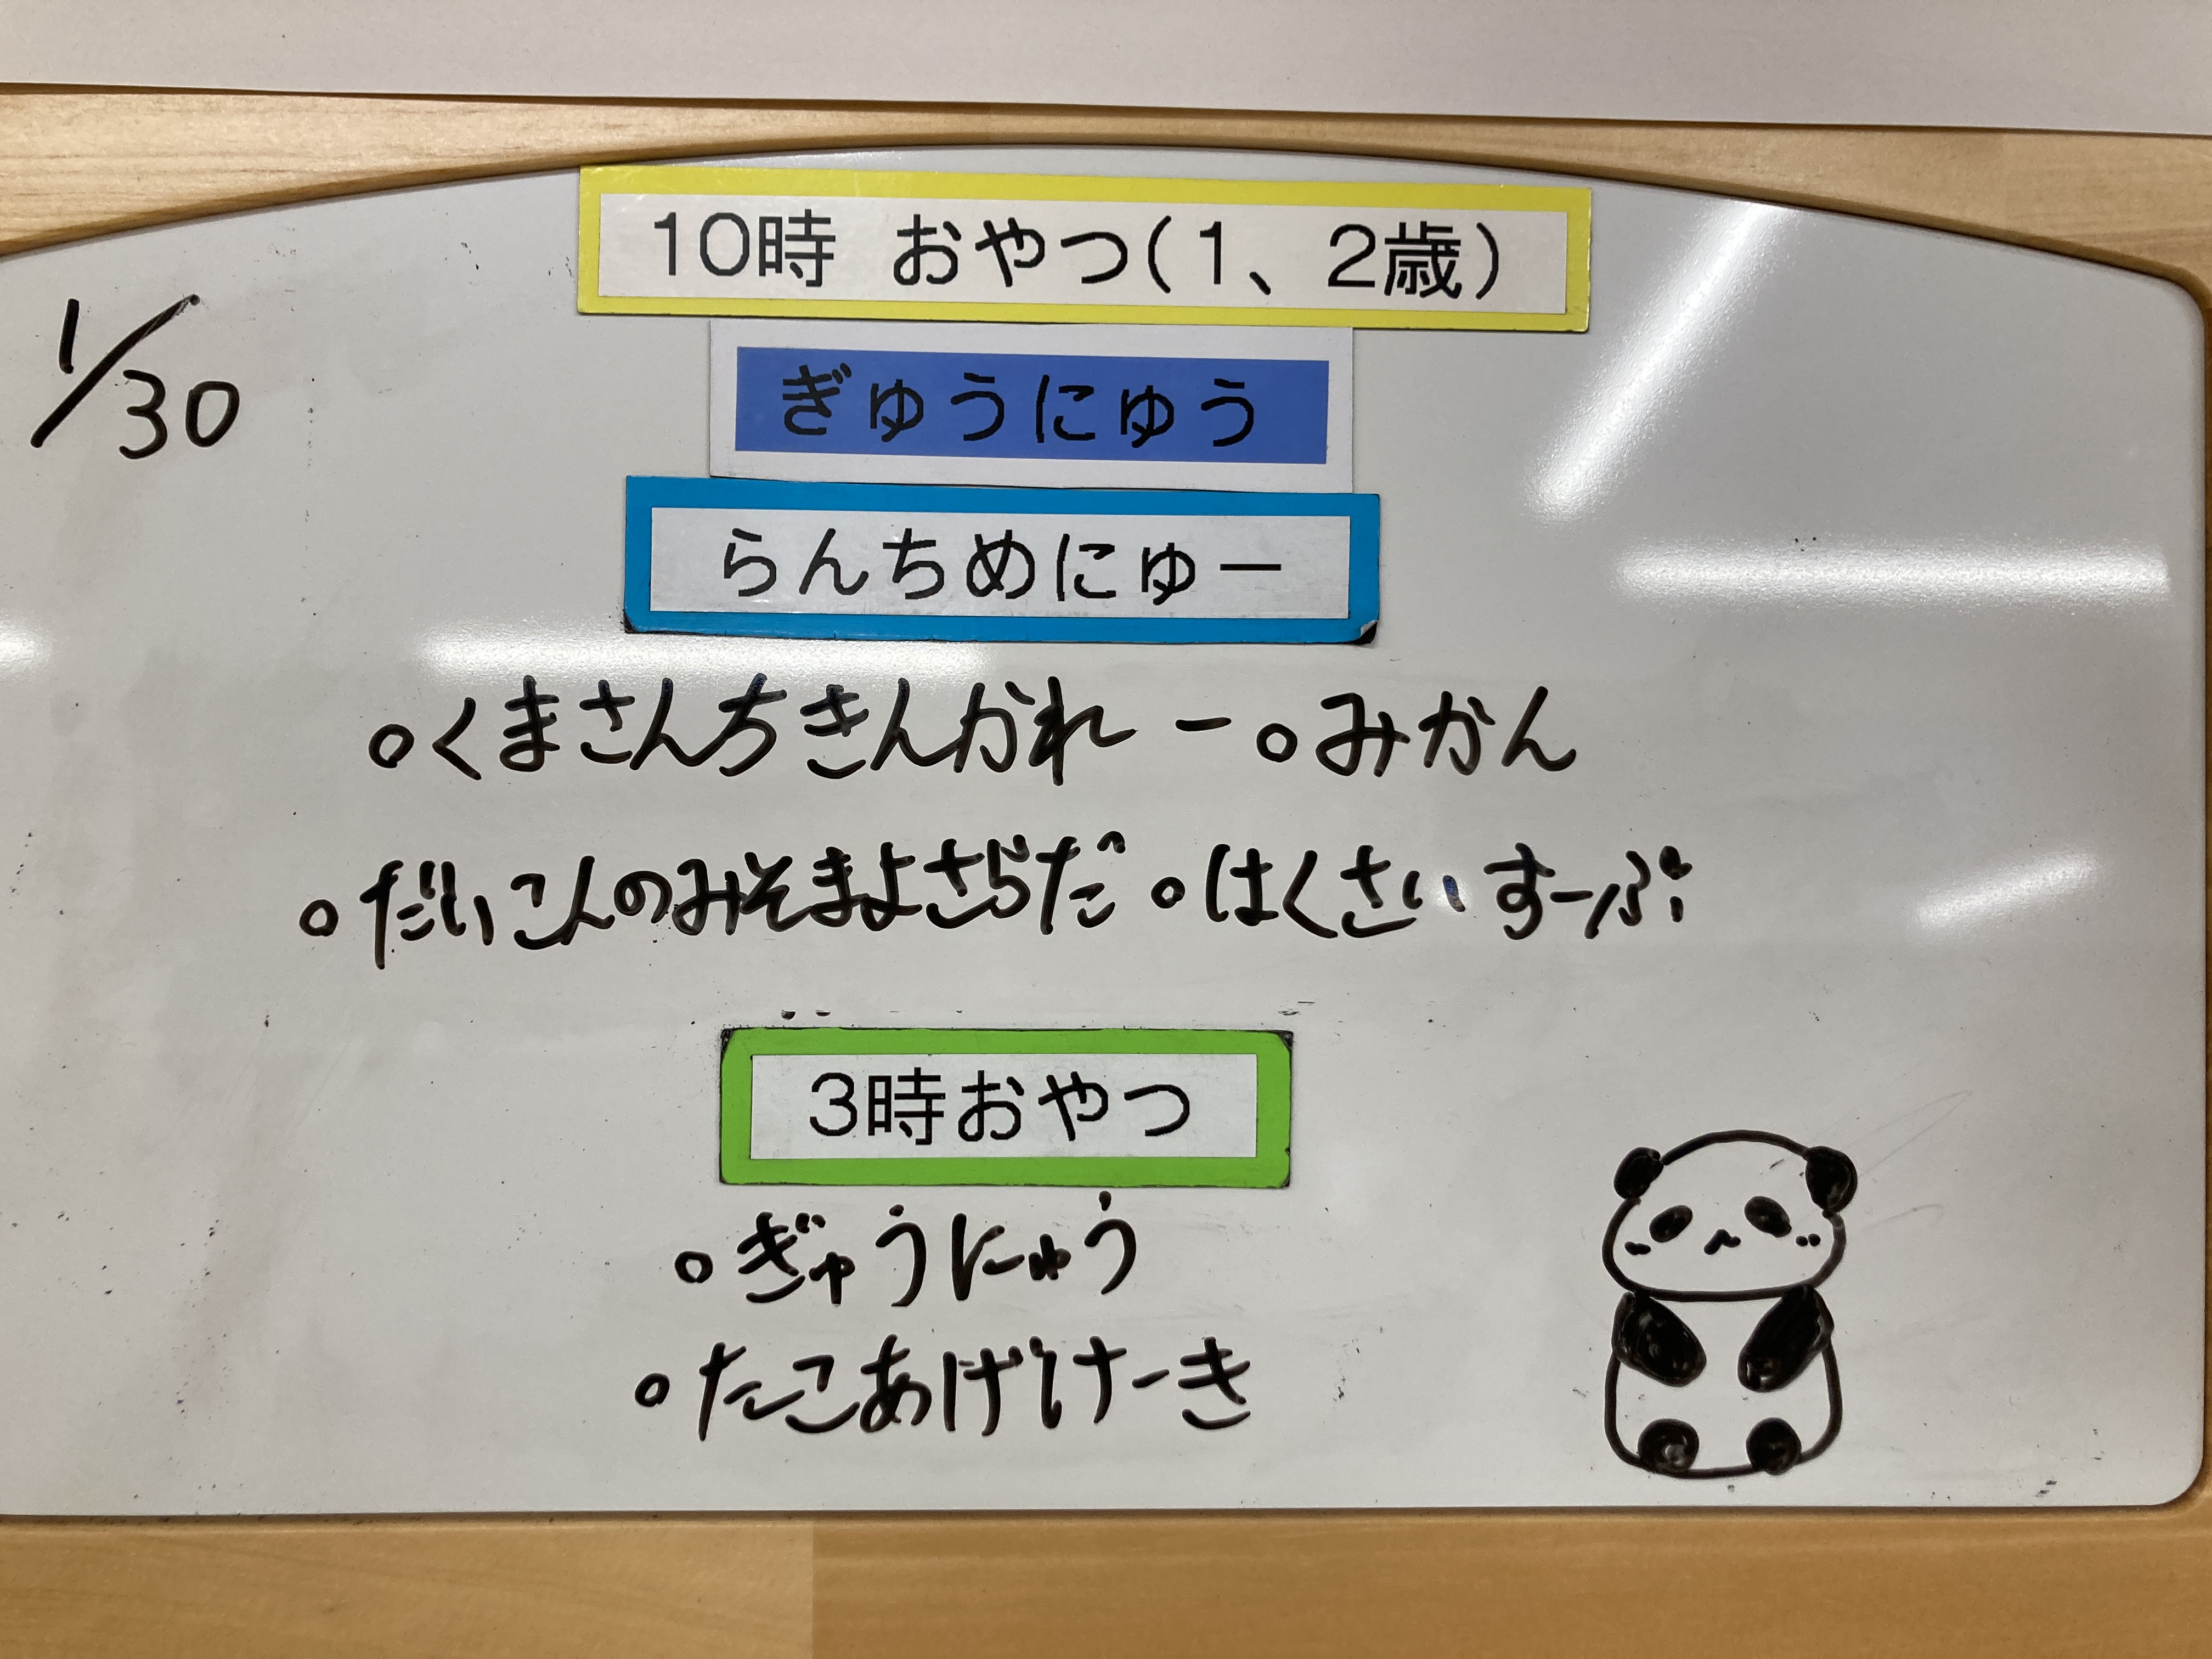 10時 おやつ(1、2歳)
1/30
ぎゅうにゅう
らんちめにゅー
○くまさんちきんかれー ○みかん
○だいこんのみそまよさらだ ○はくさいすーぷ
3時おやつ
○ぎゅうにゅう
○たこあげけーき